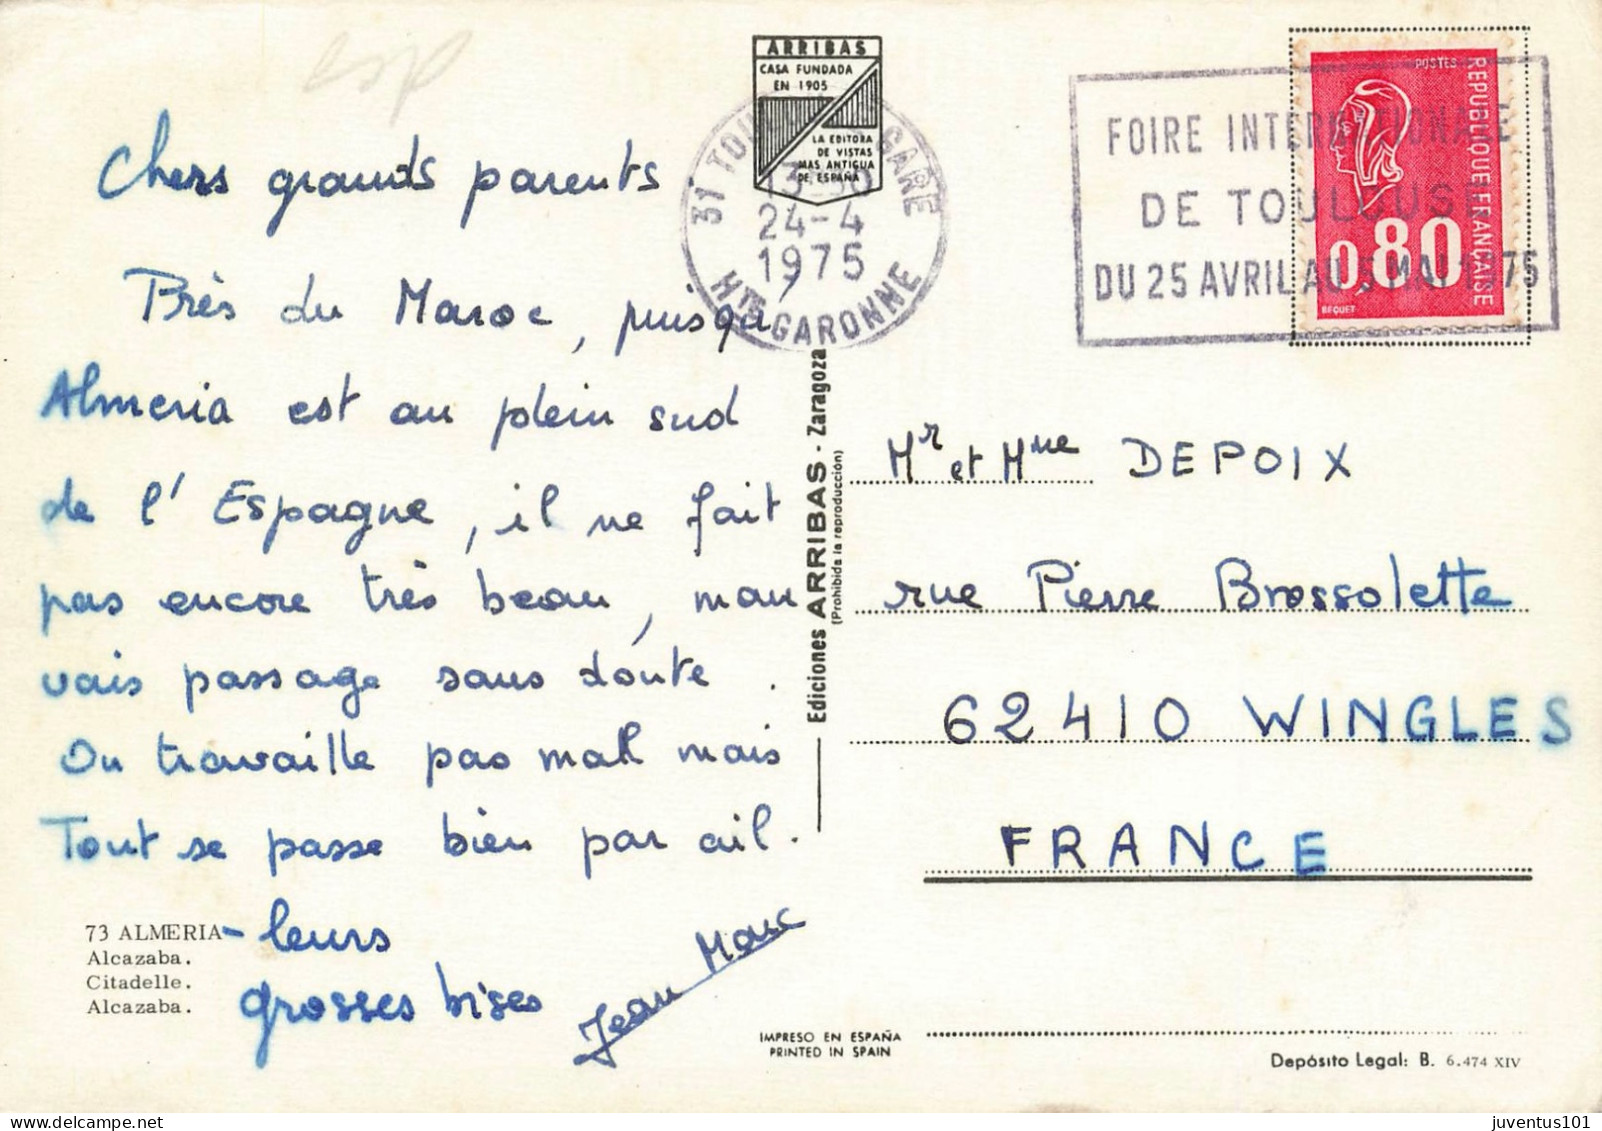 esp
ARRIBAS
CASA FUNDADA
EN 1905
LA EDITORA
DE VISTAS
MAS ANTIGUA
DE ESPAÑA
31 TOU GARE
24-4
1975
HTE GARONNE
FOIRE INTERNATIONALE
DE TOULOUSE
DU 25 AVRIL AU 5 MAI 1975
POSTES
REPUBLIQUE FRANÇAISE
0,80
BEQUET
Chers grands parents
Près du Maroc, puisqu'
Almeria est au plein sud
de l'Espagne, il ne fait
pas encore très beau, mau
vais passage sans doute.
On travaille pas mal mais
Tout se passe bien par ail-
leurs
grosses bises
Jean Marc
73 ALMERIA
Alcazaba.
Citadelle.
Alcazaba.
Ediciones ARRIBAS - Zaragoza
(Prohibida la reproducción)
Mr et Mme DEPOIX
rue Pierre Brossolette
62410 WINGLES
FRANCE
IMPRESO EN ESPAÑA
PRINTED IN SPAIN
Depósito Legal: B. 6.474 XIV
juventus101